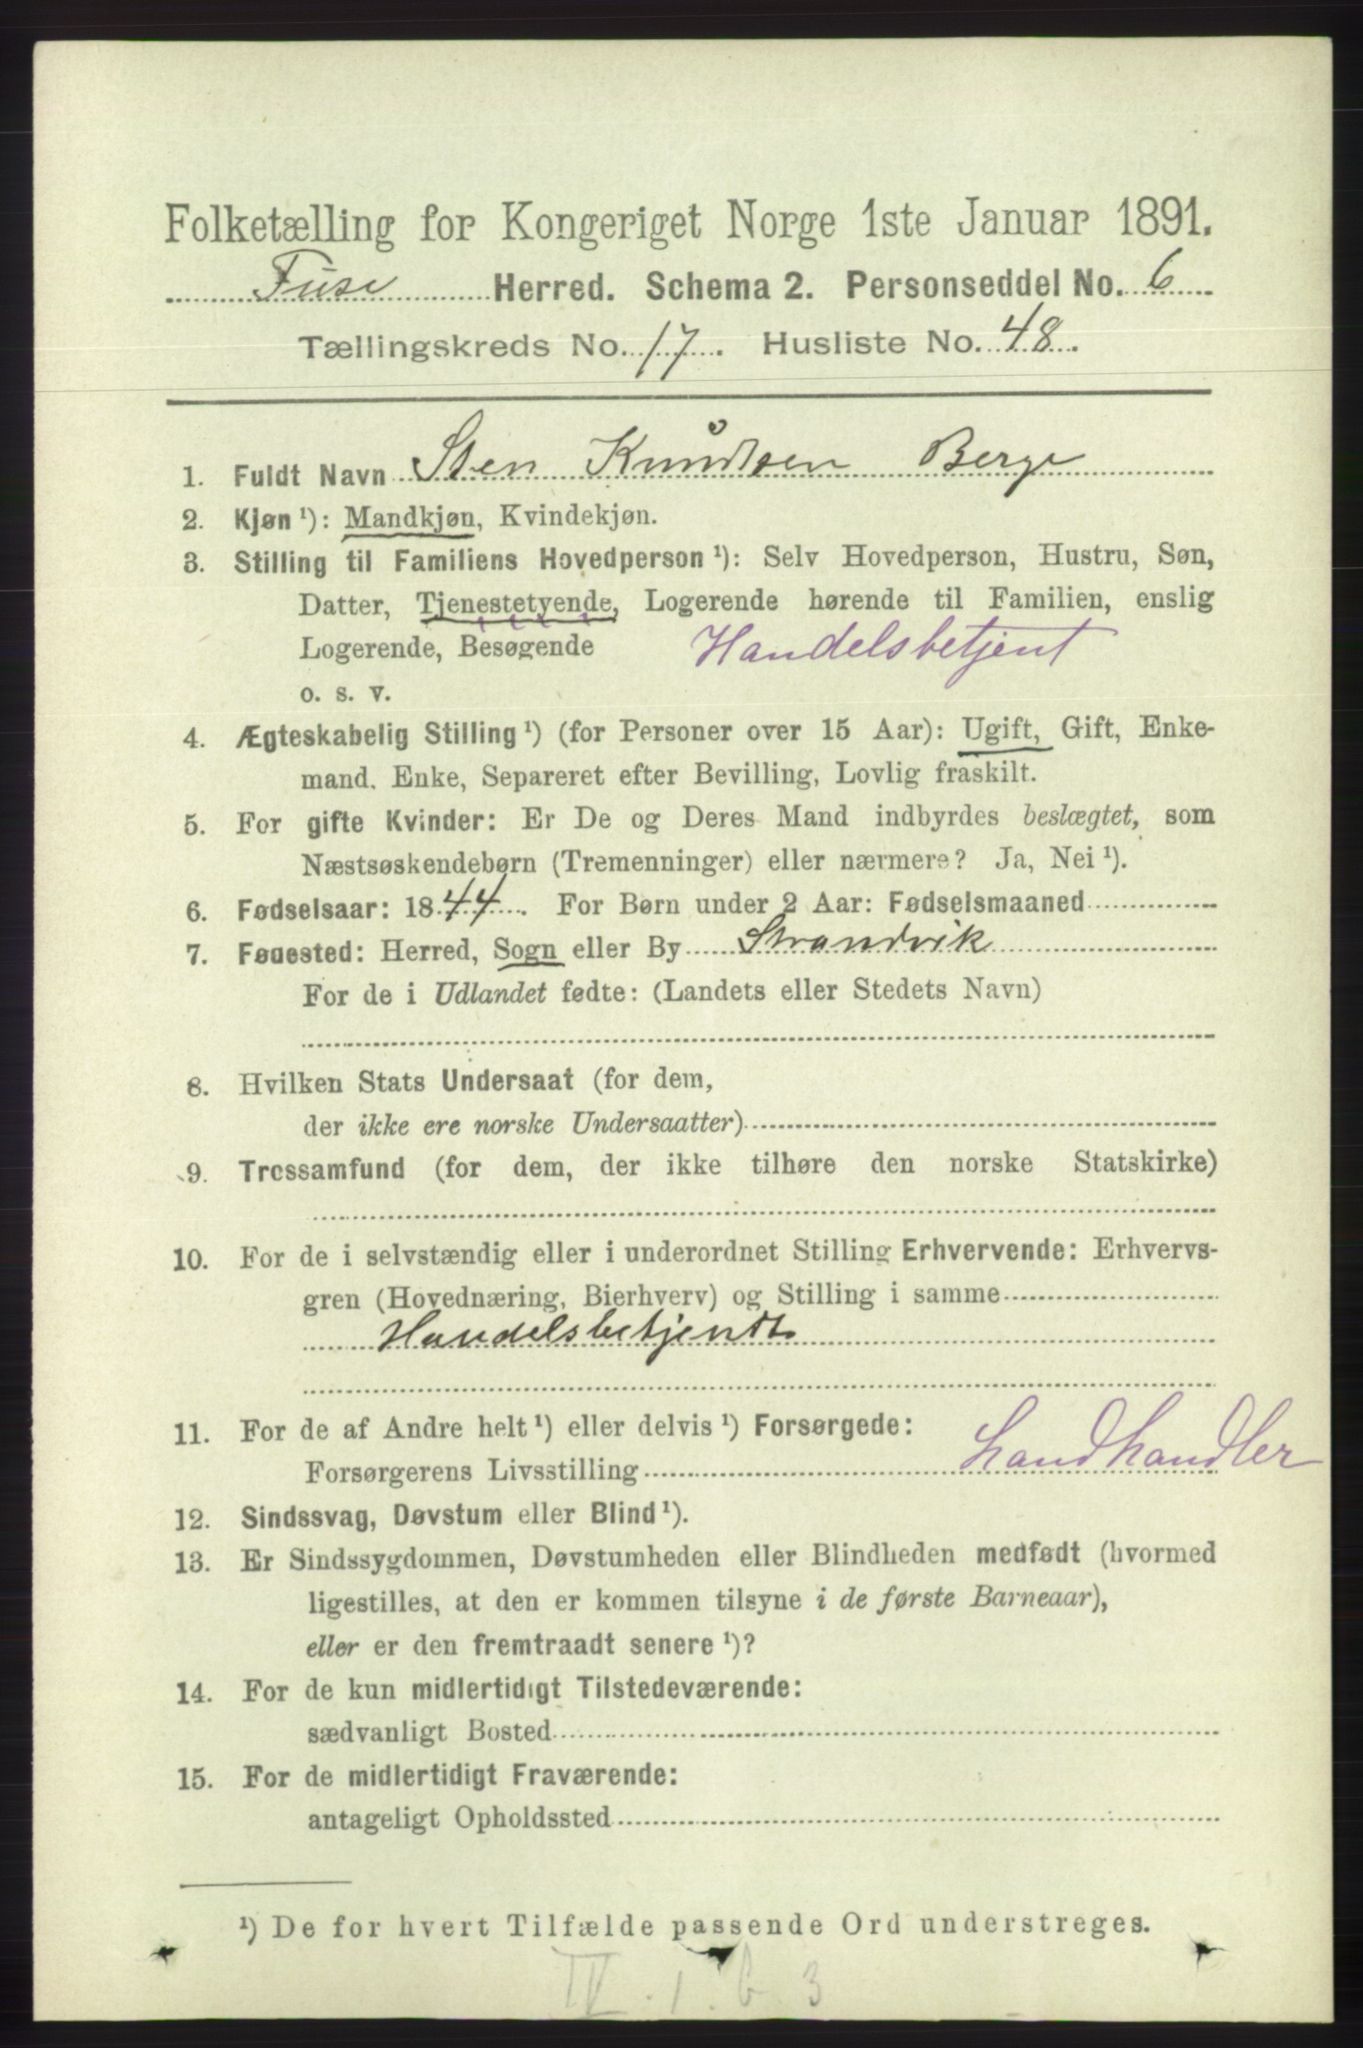 Folketælling for Kongeriget Norge 1ste Januar 1891.
Fuse Herred. Schema 2. Personseddel No. 6
Tællingskreds No. 17. Husliste No. 48.
1. Fuldt Navn Sten Knudtsen Berge
2. Kjøn ¹): Mandkjøn, Kvindekjøn.
3. Stilling til Familiens Hovedperson ¹): Selv Hovedperson, Hustru, Søn,
Datter, Tjenestetyende, Logerende hørende til Familien, enslig
Logerende, Besøgende Handelsbetjent
o. s. v.
4. Ægteskabelig Stilling ¹) (for Personer over 15 Aar): Ugift, Gift, Enke-
mand, Enke, Separeret efter Bevilling, Lovlig fraskilt.
5. For gifte Kvinder: Er De og Deres Mand indbyrdes beslægtet, som
Næstsøskendebørn (Tremenninger) eller nærmere? Ja, Nei ¹).
6. Fødselsaar: 1844. For Børn under 2 Aar: Fødselsmaaned
7. Fødested: Herred, Sogn eller By Strandvik
For de i Udlandet fødte: (Landets eller Stedets Navn)
8. Hvilken Stats Undersaat (for dem,
der ikke ere norske Undersaatter)
9. Trossamfund (for dem, der ikke tilhøre den norske Statskirke)
10. For de i selvstændig eller i underordnet Stilling Erhvervende: Erhvervs-
gren (Hovednæring, Bierhverv) og Stilling i samme
Handelsbetjendt
11. For de af Andre helt ¹) eller delvis ¹) Forsørgede:
Forsørgerens Livsstilling Landhandler
12. Sindssvag, Døvstum eller Blind ¹).
13. Er Sindssygdommen, Døvstumheden eller Blindheden medfødt (hvormed
ligestilles, at den er kommen tilsyne i de første Barneaar),
eller er den fremtraadt senere ¹)?
14. For de kun midlertidigt Tilstedeværende:
sædvanligt Bosted
15. For de midlertidigt Fraværende:
antageligt Opholdssted
¹) De for hvert Tilfælde passende Ord understreges.
IV. 1. 6 3